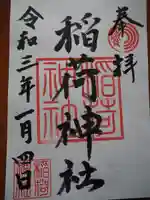 奉拝
稲荷神社
令和三年一月四日